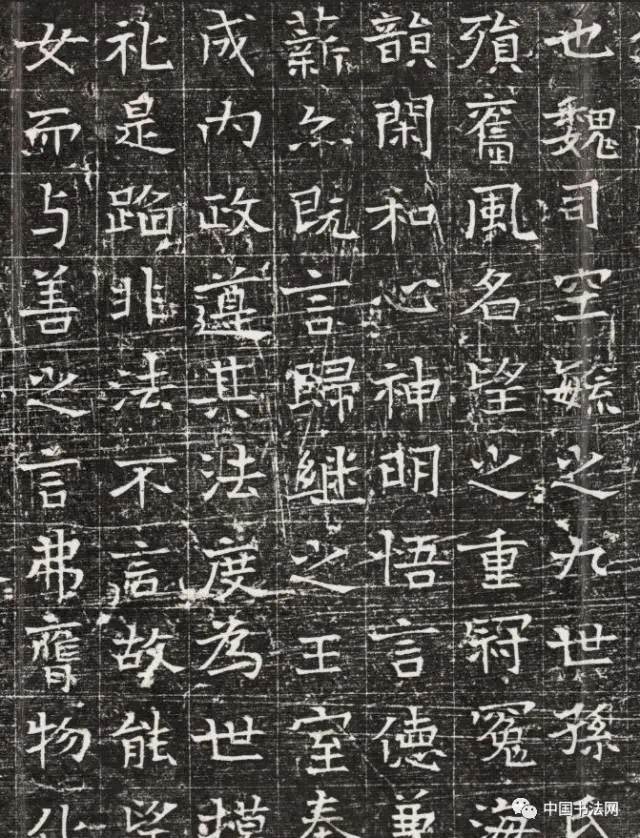 也魏司空毓之九世孫
殞舊風名望之重冠冕海
韻閑和心神明悟言德兼
薪亦既言歸継之王室奉
成内政遵其法度為世模
礼是蹈非法不言故能望
女而与善之言弗膺物
中国书法网